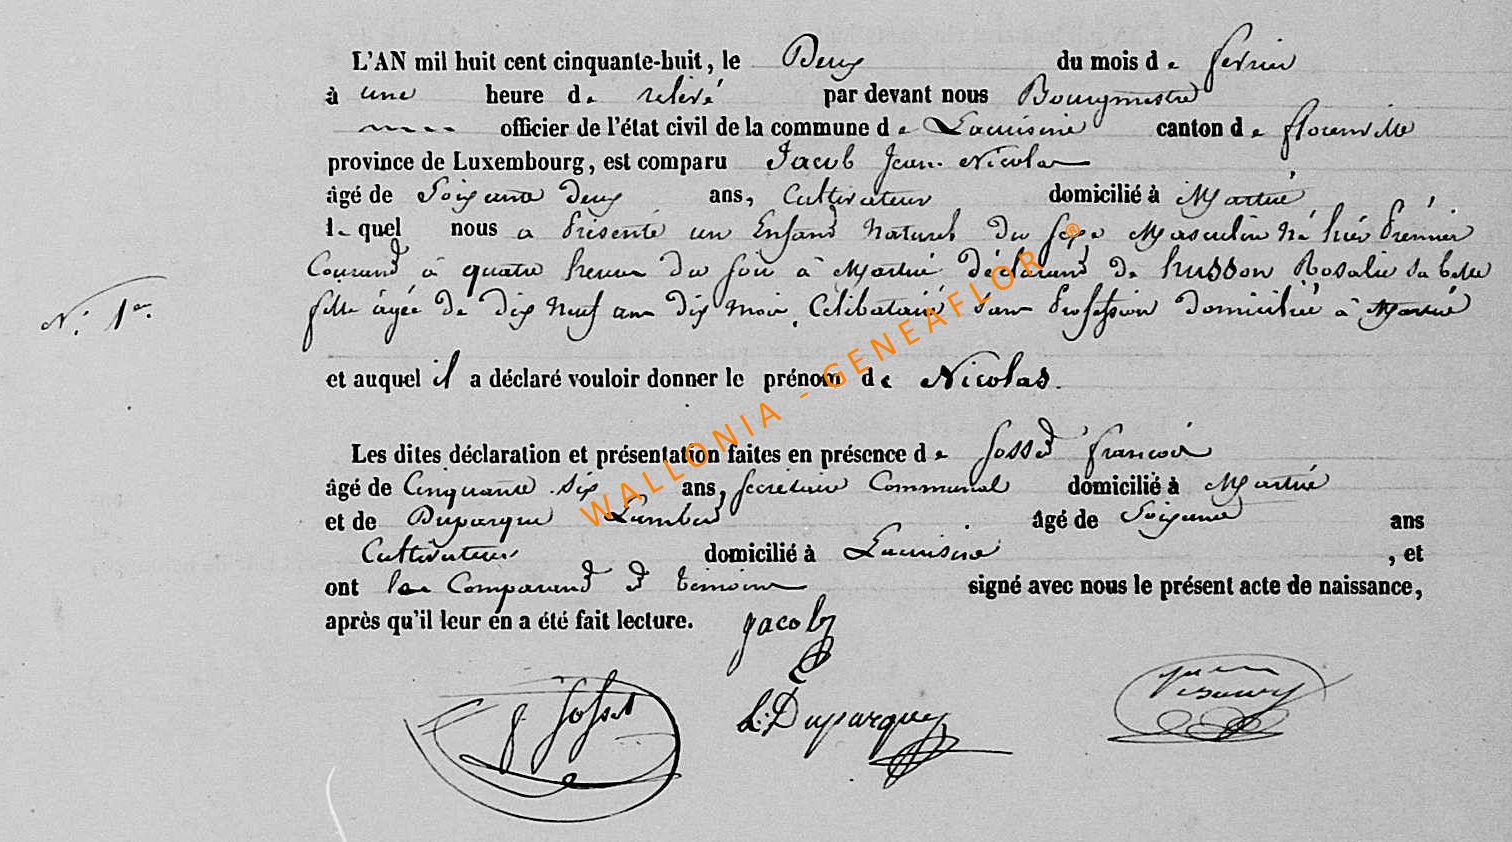 L'AN mil huit cent cinquante-huit, le Deux du mois de fevrier
à une heure de relevé par devant nous Bourgmestre
officier de l'état civil de la commune de Lacuisine canton de florenville
province de Luxembourg, est comparu Jacob Jean Nicolas
âgé de Soixante deux ans, Cultivateur domicilié à Martué
lequel nous a Présenté un Enfant Naturel du sexe Masculin Né hier Prémier
Courant à quatre heures du soir à Martué déclarant de husson Rosalie sa belle
fille âgée de dix Neuf ans dix mois, Célibataire sans Profession domiciliée à Martué
N. 1er.
et auquel il a déclaré vouloir donner le prénom de Nicolas.
Les dites déclaration et présentation faites en présence de Josset françois
âgé de Cinquante six ans, secrétaire Communal domicilié à Martué
et de Duparque Lambert âgé de Soixante ans
Cultivateur domicilié à Lacuisine, et
ont les Comparant et témoins signé avec nous le présent acte de naissance,
après qu'il leur en a été fait lecture. Jacob
f Josset L: Duparque
WALLONIA - GENEAFLOR ®